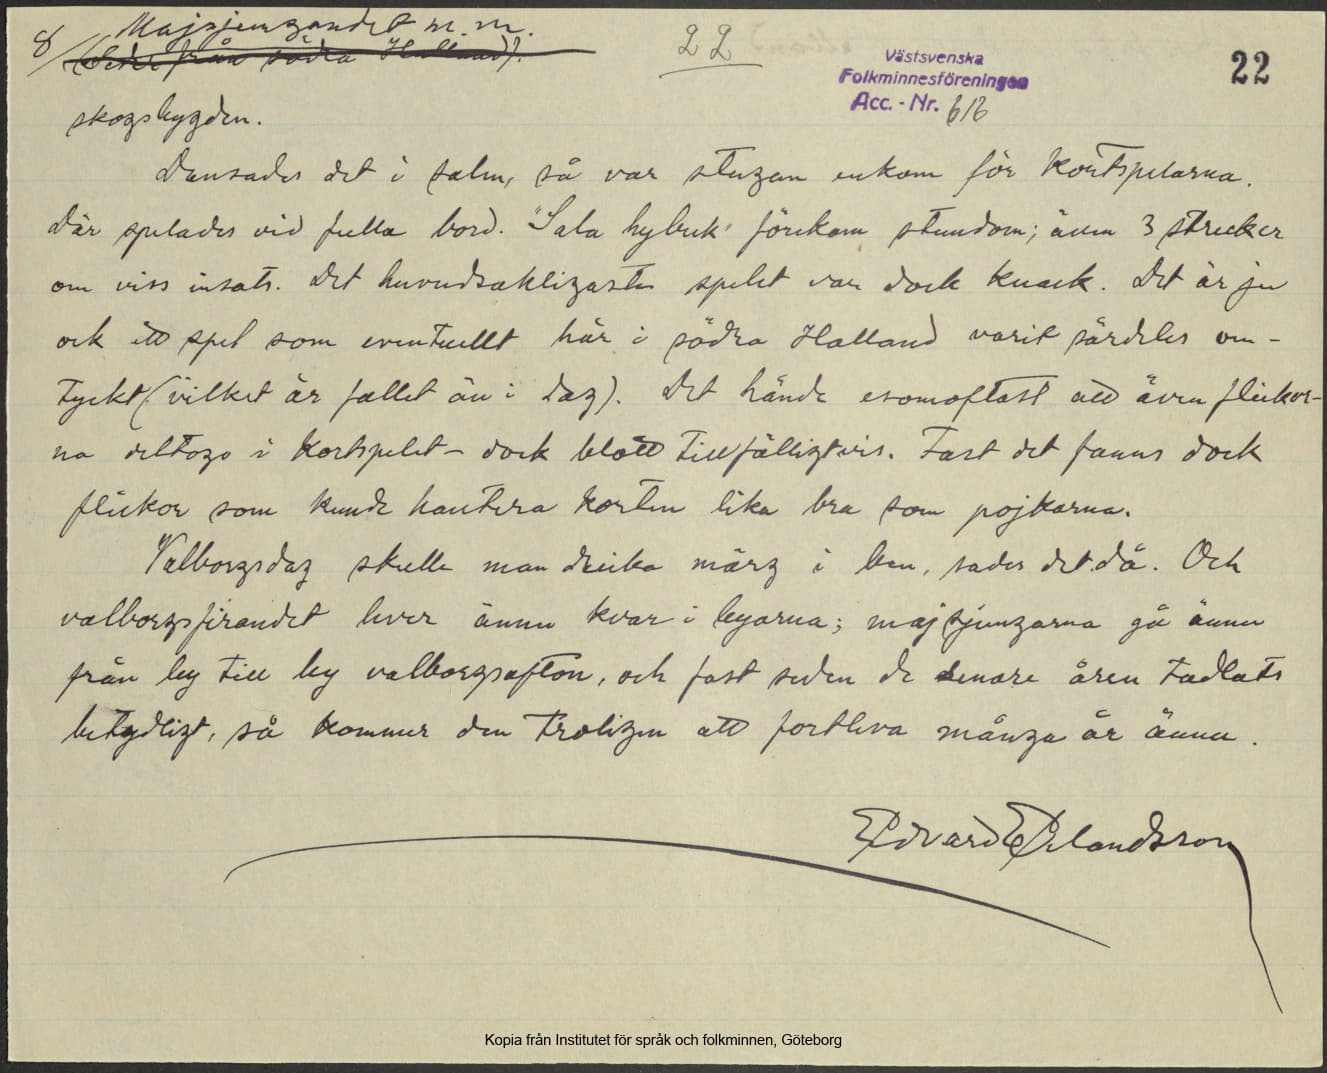 8/ Majsjungandet m.m.
(Seder från södra Halland).
22
22
Västsvenska
Folkminnesföreningen
Acc. - Nr. 616
skogsbygden.
Dansades det i salen, så var stugan enkom för kortspelarna.
Där spelades vid fulla bord. "Sala hybuk" förekom stundom; även 3 strecker
om viss insats. Det huvudsakligaste spelet var dock knack. Det är ju
ock ett spel som eventuellt här i södra Halland varit särdeles om-
tyckt (vilket är fallet än i dag). Det hände esomoftast att även flickor-
na deltogo i kortspelet - dock blott tillfälligtvis. Fast det fanns dock
flickor som kunde hantera korten lika bra som pojkarna.
Valborgsdag skulle man dricka märg i ben, sades det då. Och
valborgsfirandet lever ännu kvar i byarna; majsjungarna gå ännu
från by till by valborgsafton, och fast seden de senare åren
betydligt, så kommer den troligen att fortleva många år ännu.
Edvard Erlandsson
Kopia från Institutet för språk och folkminnen, Göteborg